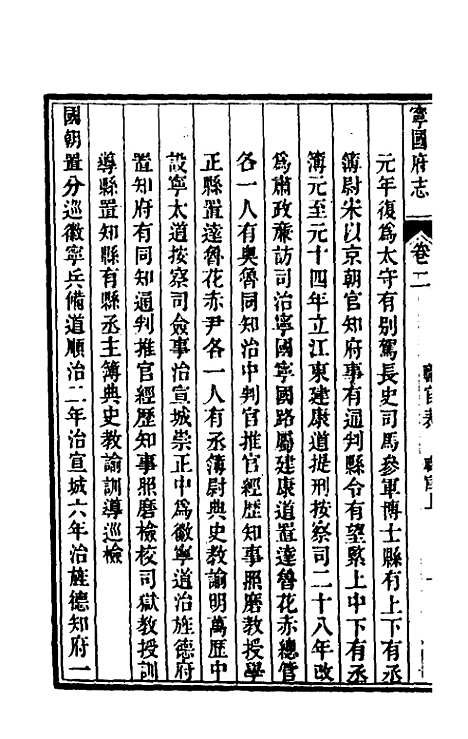 寧國府志 卷二 職官表
元年復爲太守有别駕長史司馬參軍博士縣有上下有丞
簿尉宋以京朝官知府事有通判縣令有望緊上中下有丞
簿元至元十四年立江東建康道提刑按察司二十八年改
爲肅政亷訪司治寧國寧國路屬建康道置達魯花赤總管
各一人有奥魯同知治中判官推官經歴知事照磨教授學
正縣置達魯花赤尹各一人有丞簿尉典史教諭明萬歴中
設寧太道按察司僉事治宣城崇正中爲徽寧道治旌德府
置知府有同知通判推官經歴知事照磨檢校司獄教授訓
導縣置知縣有縣丞主簿典史教諭訓導巡檢
國朝置分巡徽寧兵備道順治二年治宣城六年治旌德知府一